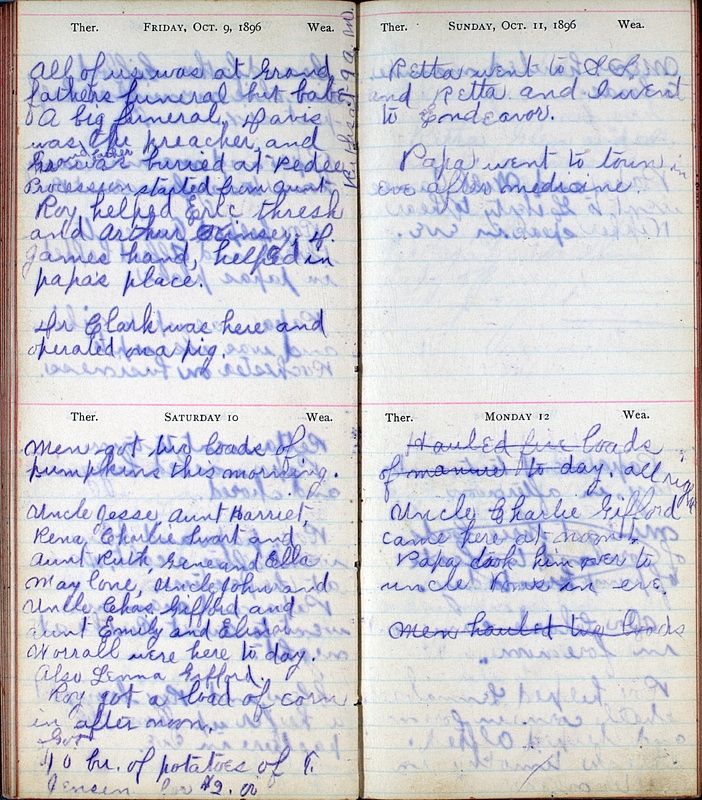 Ther. FRIDAY, OCT. 9, 1896 Wea.
All of us was at Grand
fathers funeral but babe
A big funeral, Davis
was the preacher, and
Grand father
he was buried at Pedee
Procession started from aunt
Roy helped Eric thresh
and Arthur, H.
James hand, helped in
papa's place.
Dr Clark was here and
operated on a pig.
Ther. SATURDAY 10 Wea.
Men got two loads of
pumpkins this morning.
Uncle Jesse, Aunt Harriet,
Rena, Charlie Swart and
Aunt Ruth, Gene and Ella
May Cone, Uncle John and
Uncle Chas. Gifford and
aunt Emily and
Worrall were here to day.
Also Lenna Gifford.
Roy got a load of corn
in after noon,
Got
40 bu. of potatoes of T.
Jensen for $2.00
Ther. SUNDAY, OCT. 11, 1896 Wea.
Retta went to S.S.
and Retta and I went
to Endeavor.
Papa went to town in
eve after medicine.
Ther. MONDAY 12 Wea.
Hauled five loads
of manure to day. all right
Uncle Charlie Gifford
came here at noon.
Papa took him over to
uncle in eve.
Men hauled two loads